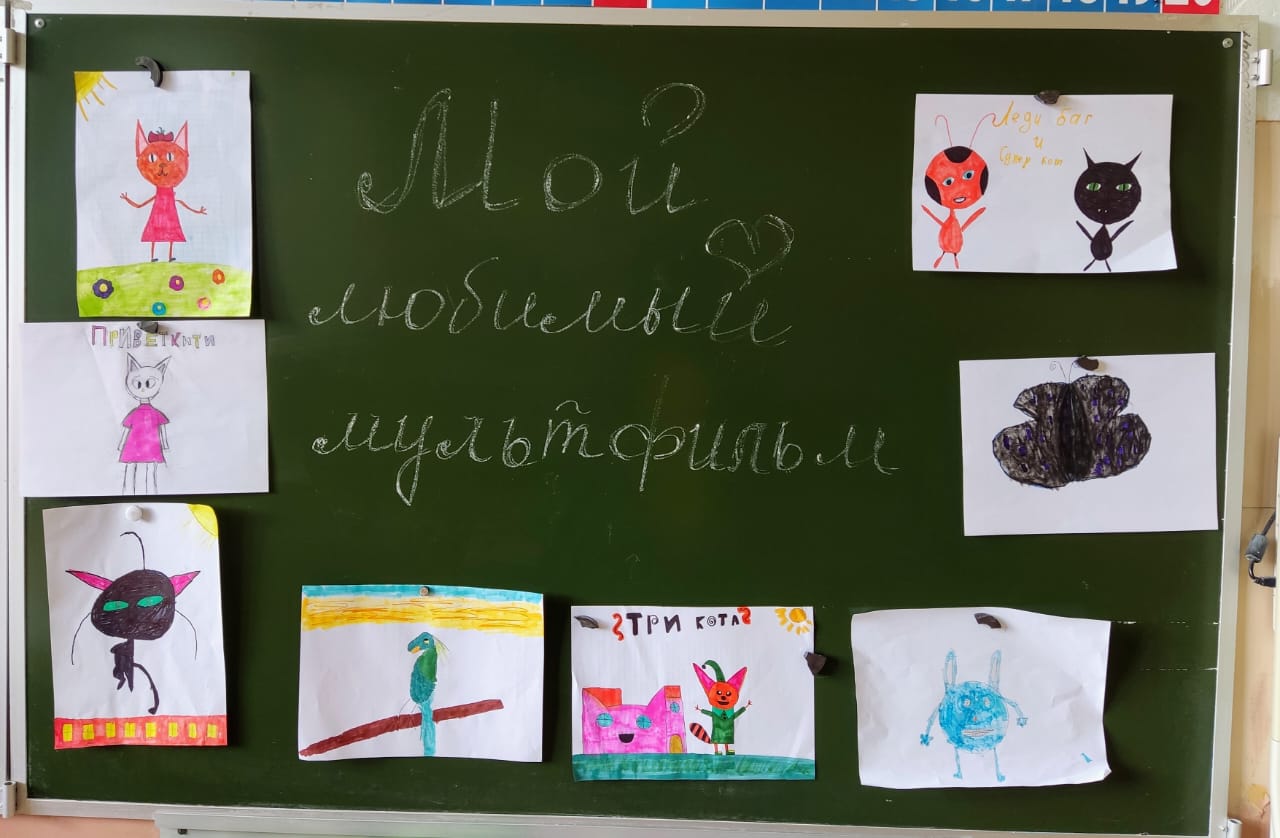 Мой
любимый
мультфильм
ПРИВЕТ КИТИ
Леди баг
и
Супер кот
ТРИ КОТА